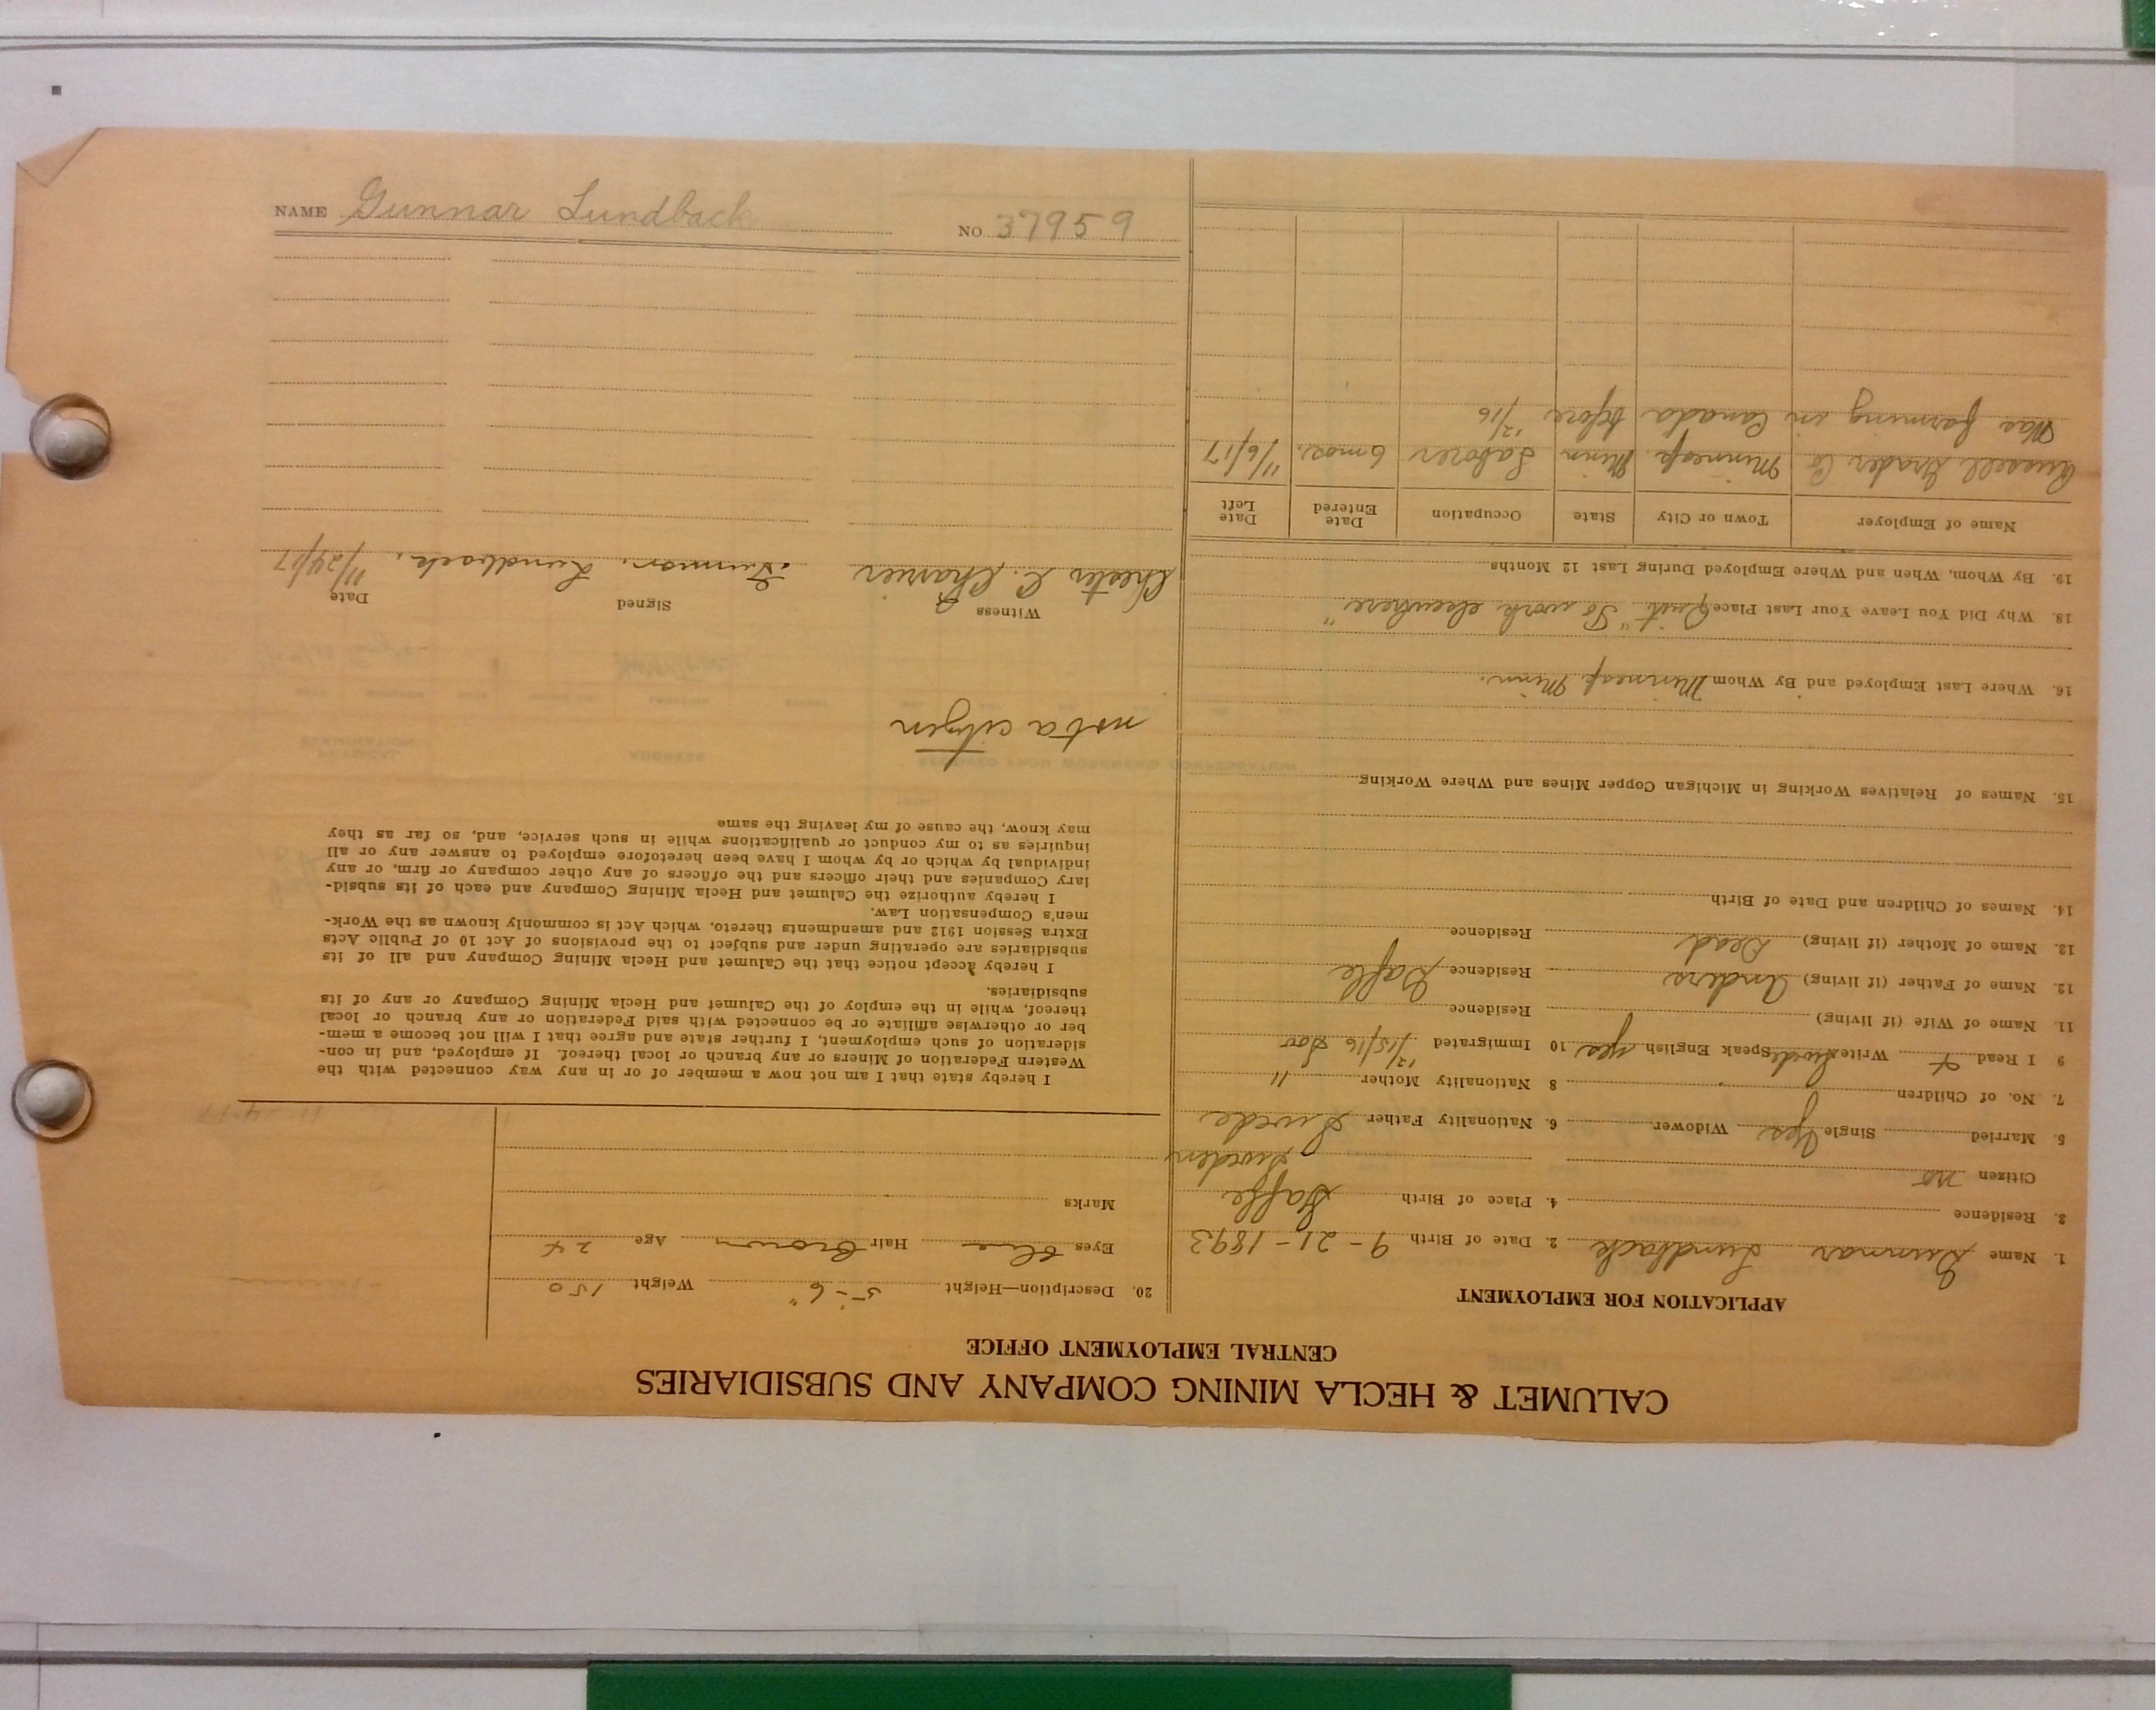 CALUMET & HECLA MINING COMPANY AND SUBSIDIARIES
CENTRAL EMPLOYMENT OFFICE
APPLICATION FOR EMPLOYMENT
1. Name Gunnar Lundback 2. Date of Birth 9-21-1893
3. Residence 4. Place of Birth Gafle
Citizen no Sweden
5. Married Single Yes Widower 6. Nationality Father Swede
7. No. of Children 8 Nationality Mother "
9 I Read + Write Swede Speak English yes 10 Immigrated 12/15/16
11. Name of Wife (if living) Residence
12. Name of Father (if living) Anders Residence Gafle
12. Name of Mother (if living) Dead Residence
14. Names of Children and Date of Birth
15. Names of Relatives Working in Michigan Copper Mines and Where Working
16. Where Last Employed and By Whom Minneap. Minn.
18. Why Did You Leave Your Last Place Quit "To work elsewhere"
19. By Whom, When and Where Employed During Last 12 Months
Name of Employer Town or City State Occupation Date Entered Date Left
Russell Grader Co Minneap. Minn Laborer 6 mos. 11/6/17
Was farming in Canada before 12/16
20. Description—Height 5'-6" Weight 150
Eyes Blue Hair Brown Age 24
Marks
I hereby state that I am not now a member of or in any way connected with the
Western Federation of Miners or any branch or local thereof. If employed, and in con-
sideration of such employment, I further state and agree that I will not become a mem-
ber or otherwise affiliate or be connected with said Federation or any branch or local
thereof, while in the employ of the Calumet and Hecla Mining Company or any of its
subsidiaries.
I hereby accept notice that the Calumet and Hecla Mining Company and all of its
subsidiaries are operating under and subject to the provisions of Act 10 of Public Acts
Extra Session 1912 and amendments thereto, which Act is commonly known as the Work-
men's Compensation Law.
I hereby authorize the Calumet and Hecla Mining Company and each of its subsid-
iary Companies and their officers and the officers of any other company or firm, or any
individual by which or by whom I have been heretofore employed to answer any or all
inquiries as to my conduct or qualifications while in such service, and, so far as they
may know, the cause of my leaving the same
not a citizen
Witness Signed Date
Chester C. Charrier Gunnar. Lundback. 11/24/17
NAME Gunnar Lundback NO 37959